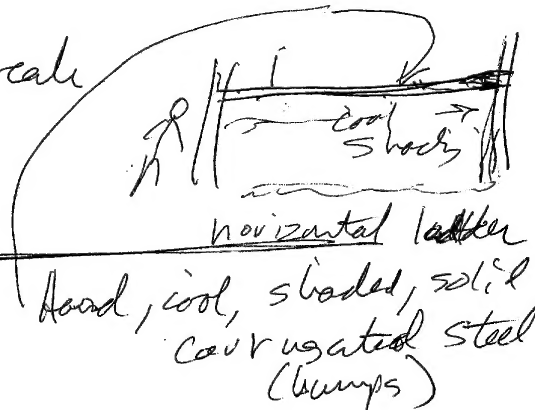 cool
shady
horizontal ladder
, cool, shaded, solid
corrugated steel
(bumps)